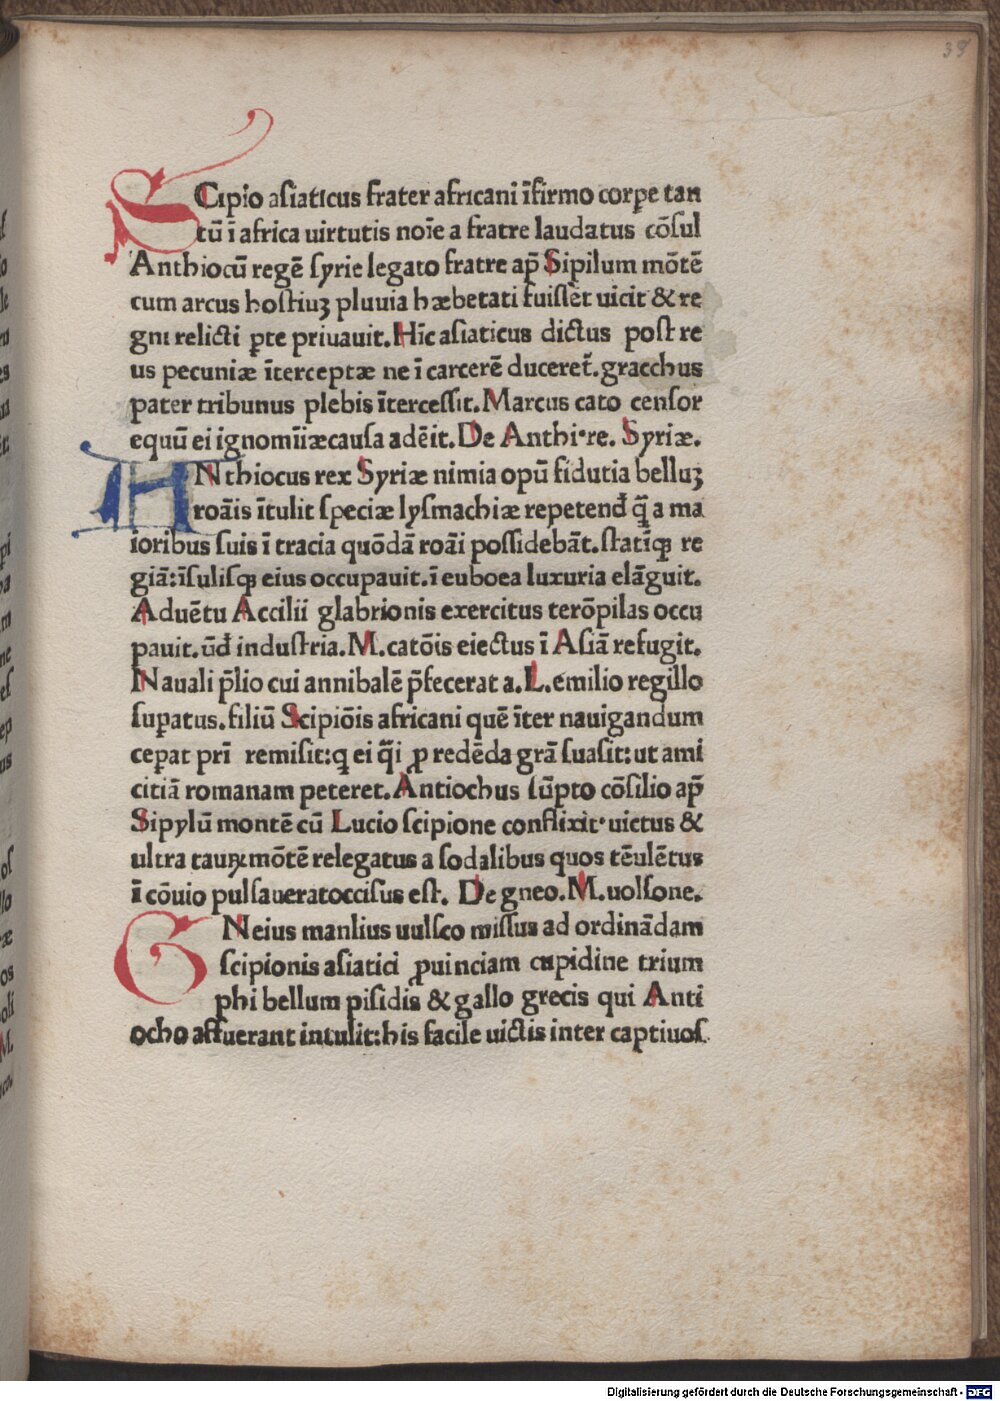 39
SCipio aſiaticus frater africani īfirmo corꝑe tan
tū ī africa uirtutis noīe a fratre laudatus cōſul
Anthiocū regē ſyrie legato fratre ap̄ Sipilum mōtē
cum arcus hoſtiuꝫ pluuia hæbetati fuiſſēt uicit & re
gni relicti ꝑte priuauit. Hīc aſiaticus dictus poſt re
us pecuniæ īterceptæ ne ī carcerē duceret̄. gracchus
pater tribunus plebis īterceſſit. Marcus cato cenſor
equū ei ignomīiæcauſa adēit. De Anthi·re. Syriæ.
ANthiocus rex Syriæ nimia opū fidutia belluꝫ
roāis ītulit ſpeciæ lyſmachiæ repetend̄ q̄ a ma
ioribus ſuis ī tracia quōdā roāi poſſidebāt. ſtatīqꝫ re
giā: īſuliſqꝫ eius occupauit. ī euboea luxuria elāguit.
Aduētu Accilii glabrionis exercitus terōpilas occu
pauit. ūd̄ induſtria. M. catōis eiectus ī Aſiā refugit.
Nauali p̄lio cui annibalē p̄fecerat a. L. emilio regillo
ſuꝑatus. filiū Scipiōis africani quē īter nauigandum
ceꝑat prī remiſit: q ei q̄i ꝓ redēda grā ſuaſit: ut ami
citiā romanam peteret. Antiochus ſūpto cōſilio ap̄
Sipylū montē cū Lucio ſcipione conflixit· uictus &
ultra tauꝝ mōtē relegatus a ſodalibus quos tēulētus
ī cōuio pulſaueratocciſus eſt. De gneo. M. uolſone.
GNeius manlius uulſco miſſus ad ordinādam
ſcipionis aſiatici ꝓuinciam cupidine trium
phi bellum piſidis & gallo grecis qui Anti
ocho affuerant intulit: his facile uictis inter captiuoſ
Digitalisierung gefördert durch die Deutsche Forschungsgemeinschaft - DFG